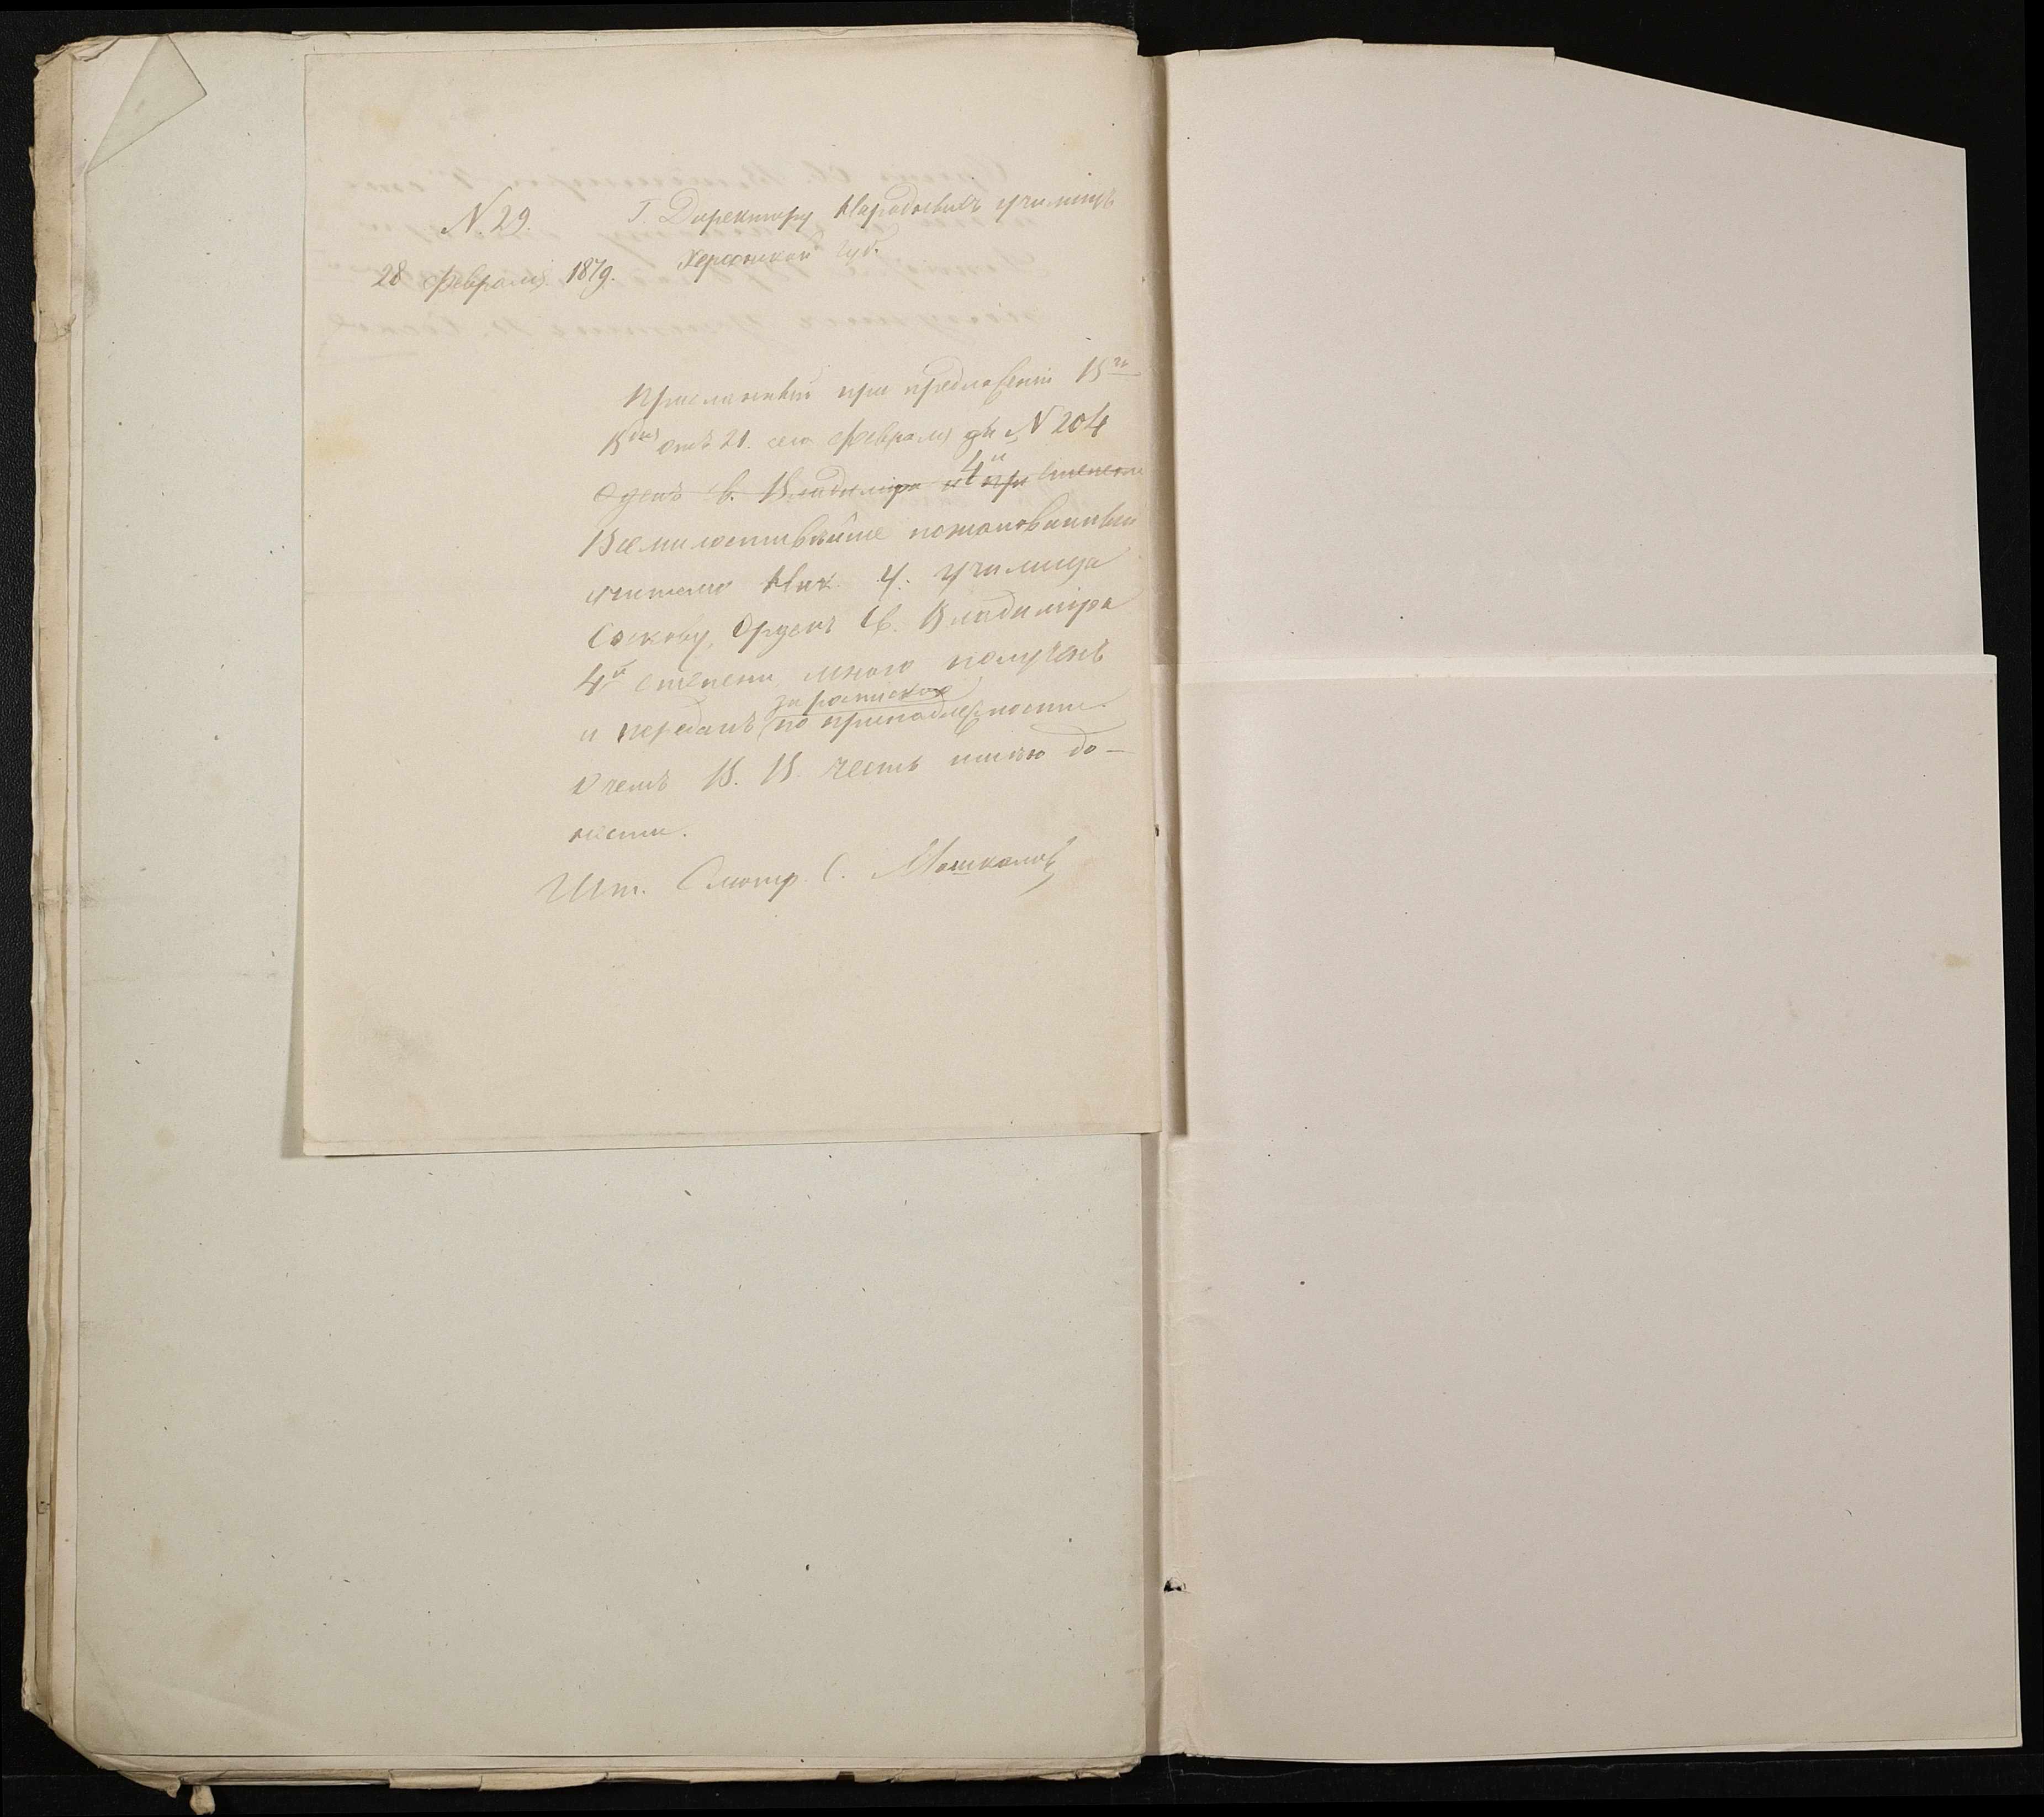 N. 29.
28 февраля 1879.
Г. Директору Народныхъ училищъ
Херсонской губ.
Присланный при предложеніи В го
В дія отъ 21. сего февраля за N 204
Орденъ Св. Владиміра 4й степени
Всемилостивѣйше пожалованный
учителю Ник. У. училища
Соскову, Орденъ Св. Владиміра
4й степени мною полученъ
и переданъ по принадлежности
за роспискою
О чемъ В. В. честь имѣю до-
нести.
Шт. Смотр. С.